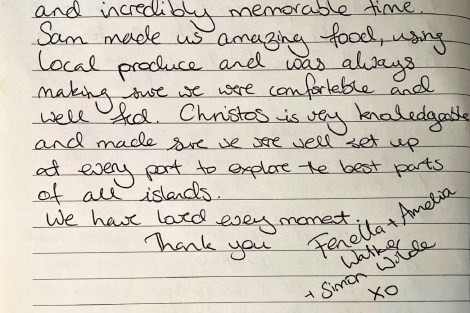 and incredibly memorable time.
Sam made us amazing food, using
local produce and was always
making sure we were comfortable and
well fed. Christos is very knowledgeable
and made sure we were well set up
at every port to explore the best parts
of all islands.
We have loved every moment.
Thank you Fenella + Amelia
Walker
+ Simon Wilde
XO